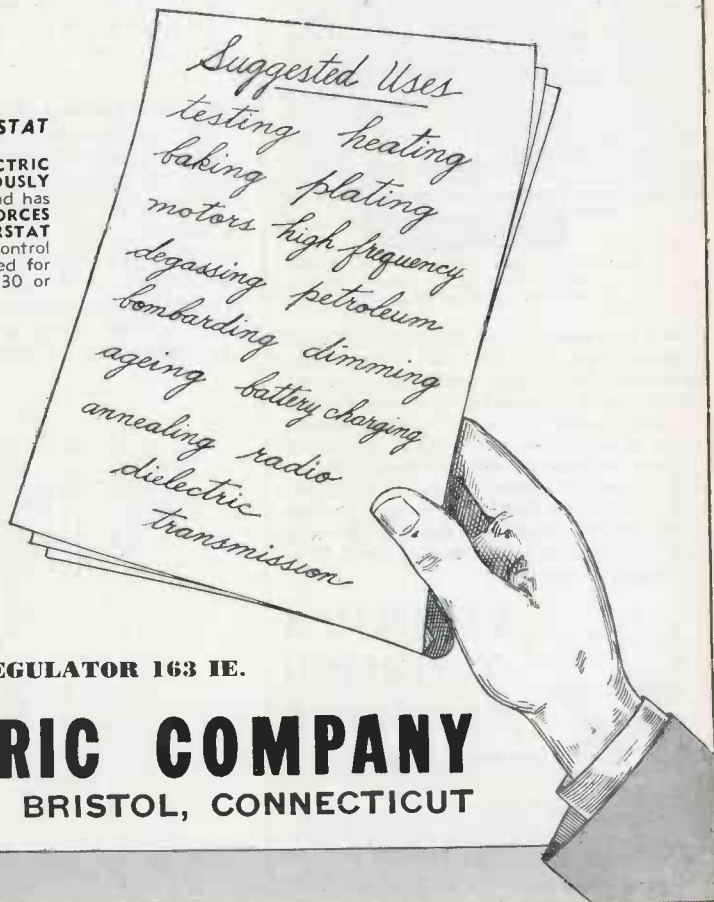 STAT
CTRIC
OUSLY
nd has
ORCES
RSTAT
ontrol
ed for
30 or
Suggested Uses
testing heating
baking plating
motors high frequency
degassing petroleum
bombarding dimming
ageing battery charging
annealing radio
dielectric
transmission
EGULATOR 163 IE.
RIC COMPANY
BRISTOL, CONNECTICUT